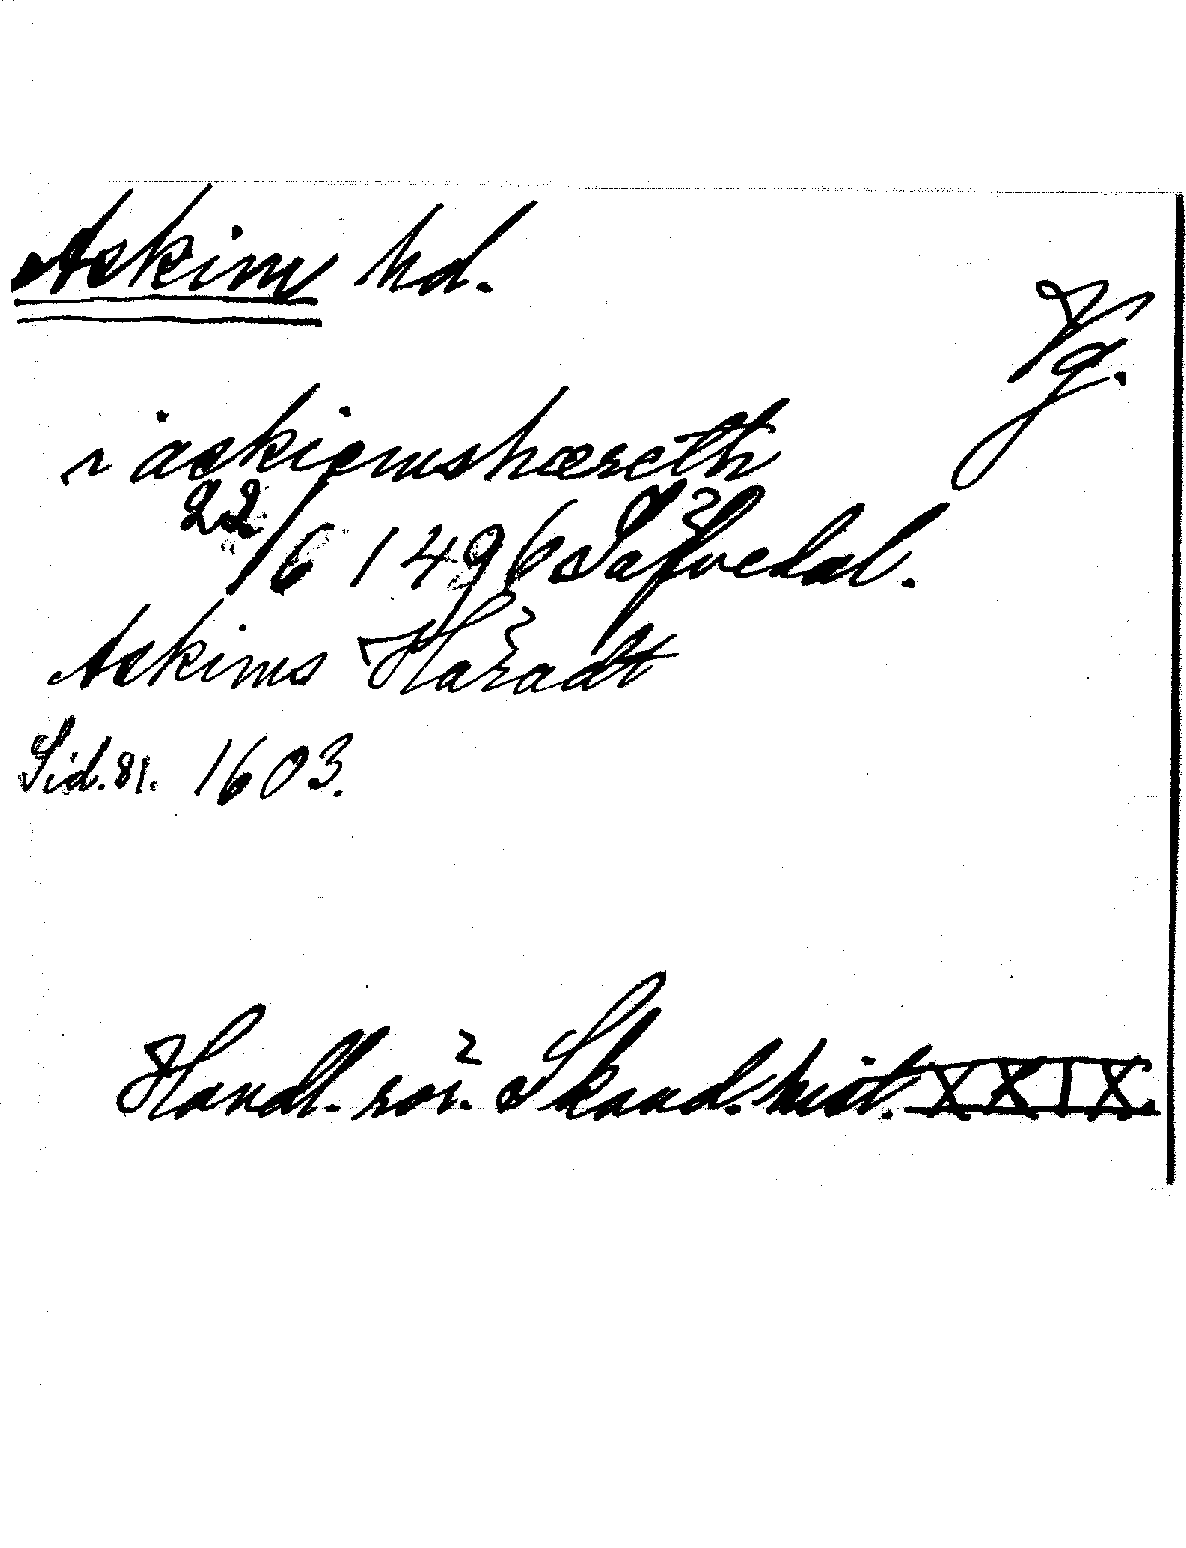 Askim hd.
Vg.
i askiemshæreth
22/6 1496 Säfvedal.
Askims Häradt
Sid. 81. 1603.
Handl. rör. Skand. hist. XXIX.